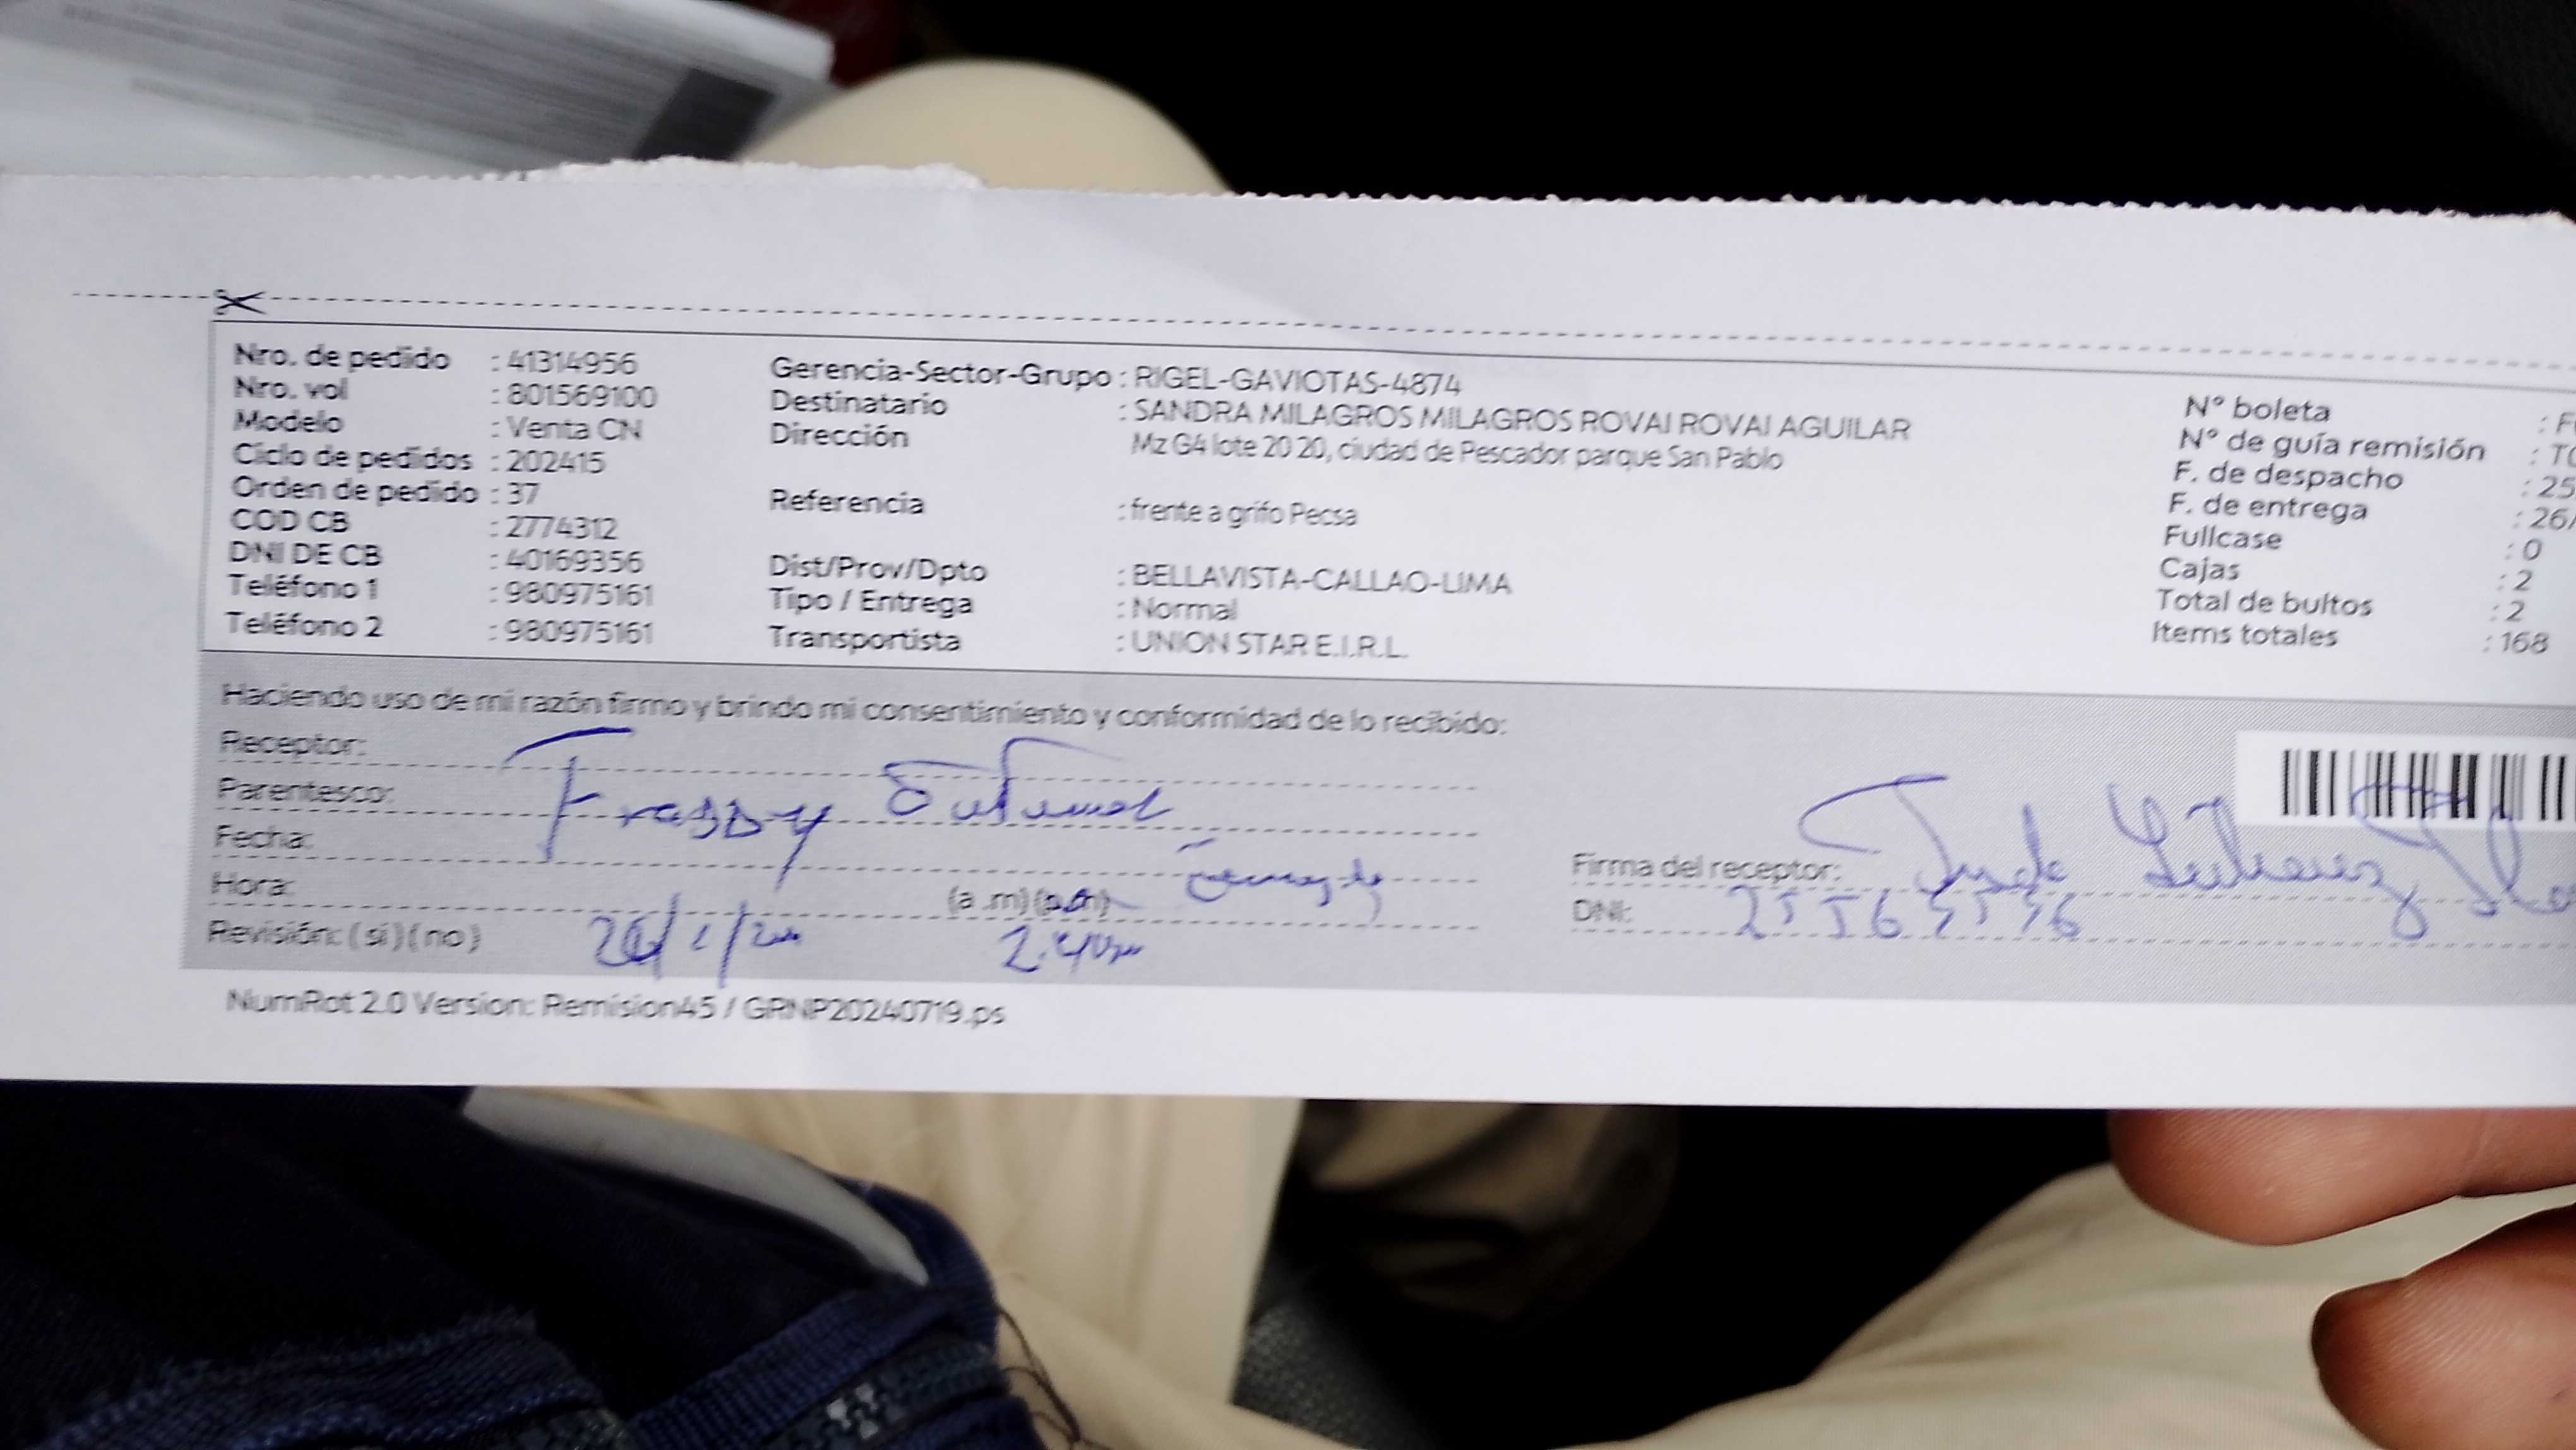 Nro. de pedido : 41314956
Nro. vol : 801569100
Modelo : Venta CN
Ciclo de pedidos : 202415
Orden de pedido : 37
COD CB : 2774312
DNI DE CB : 40169356
Teléfono 1 : 980975161
Teléfono 2 : 980975161
Gerencia-Sector-Grupo : RIGEL-GAVIOTAS-4874
Destinatario : SANDRA MILAGROS MILAGROS ROVAI ROVAI AGUILAR
Dirección Mz G4 lote 20 20, ciudad de Pescador parque San Pablo
Referencia : frente a grifo Pecsa
Dist/Prov/Dpto : BELLAVISTA-CALLAO-LIMA
Tipo / Entrega : Normal
Transportista : UNION STAR E.I.R.L.
N° boleta : F
N° de guía remisión : T
F. de despacho : 25
F. de entrega : 26/
Fullcase : 0
Cajas : 2
Total de bultos : 2
Items totales : 168
Haciendo uso de mi razón firmo y brindo mi consentimiento y conformidad de lo recibido:
Receptor:
Parentesco:
Fecha:
Hora: (a .m) (p.m)
Revisión: ( si ) ( no )
Firma del receptor:
DNI:
NumRot 2.0 Version: Remision45 / GRNP20240719.ps